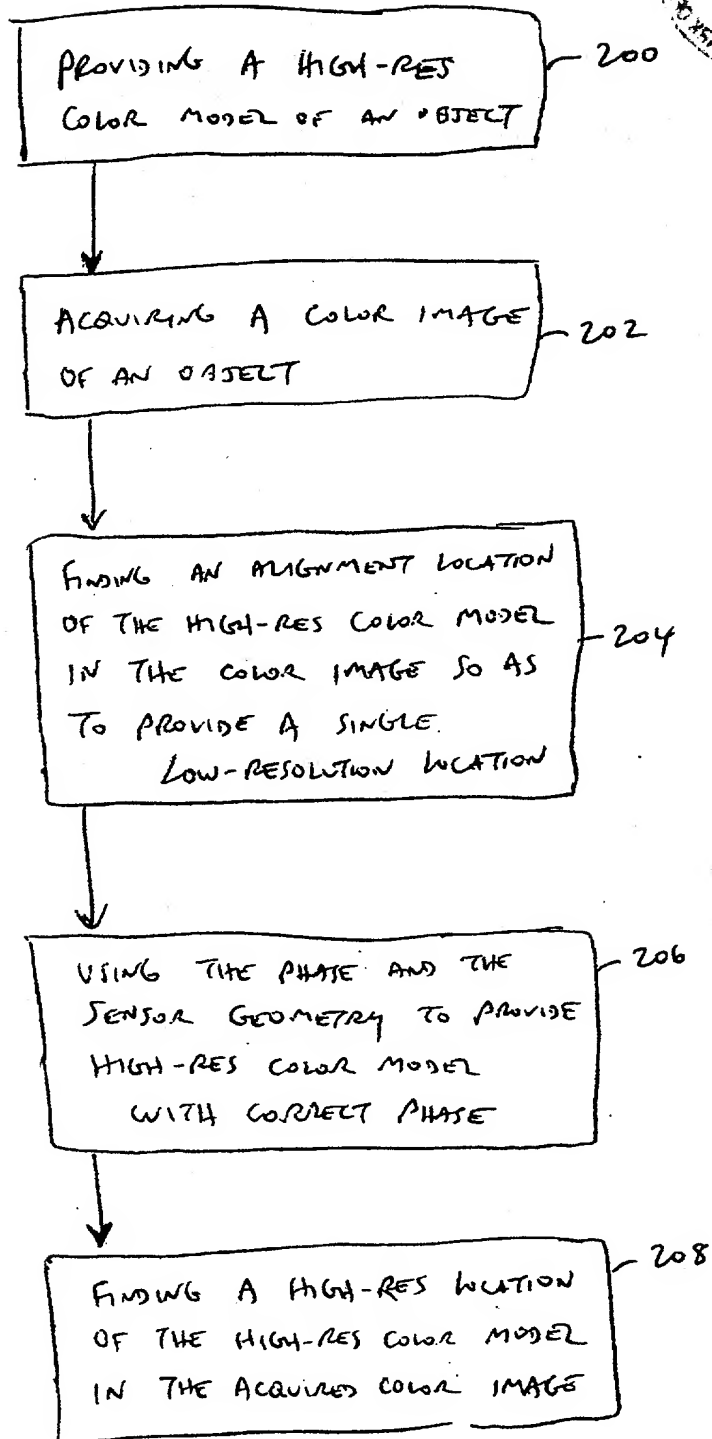 PROVIDING A HIGH-RES
COLOR MODEL OF AN OBJECT
200
ACQUIRING A COLOR IMAGE
OF AN OBJECT
202
FINDING AN ALIGNMENT LOCATION
OF THE HIGH-RES COLOR MODEL
IN THE COLOR IMAGE SO AS
TO PROVIDE A SINGLE
LOW-RESOLUTION LOCATION
204
USING THE PHASE AND THE
SENSOR GEOMETRY TO PROVIDE
HIGH-RES COLOR MODEL
WITH CORRECT PHASE
206
FINDING A HIGH-RES LOCATION
OF THE HIGH-RES COLOR MODEL
IN THE ACQUIRED COLOR IMAGE
208